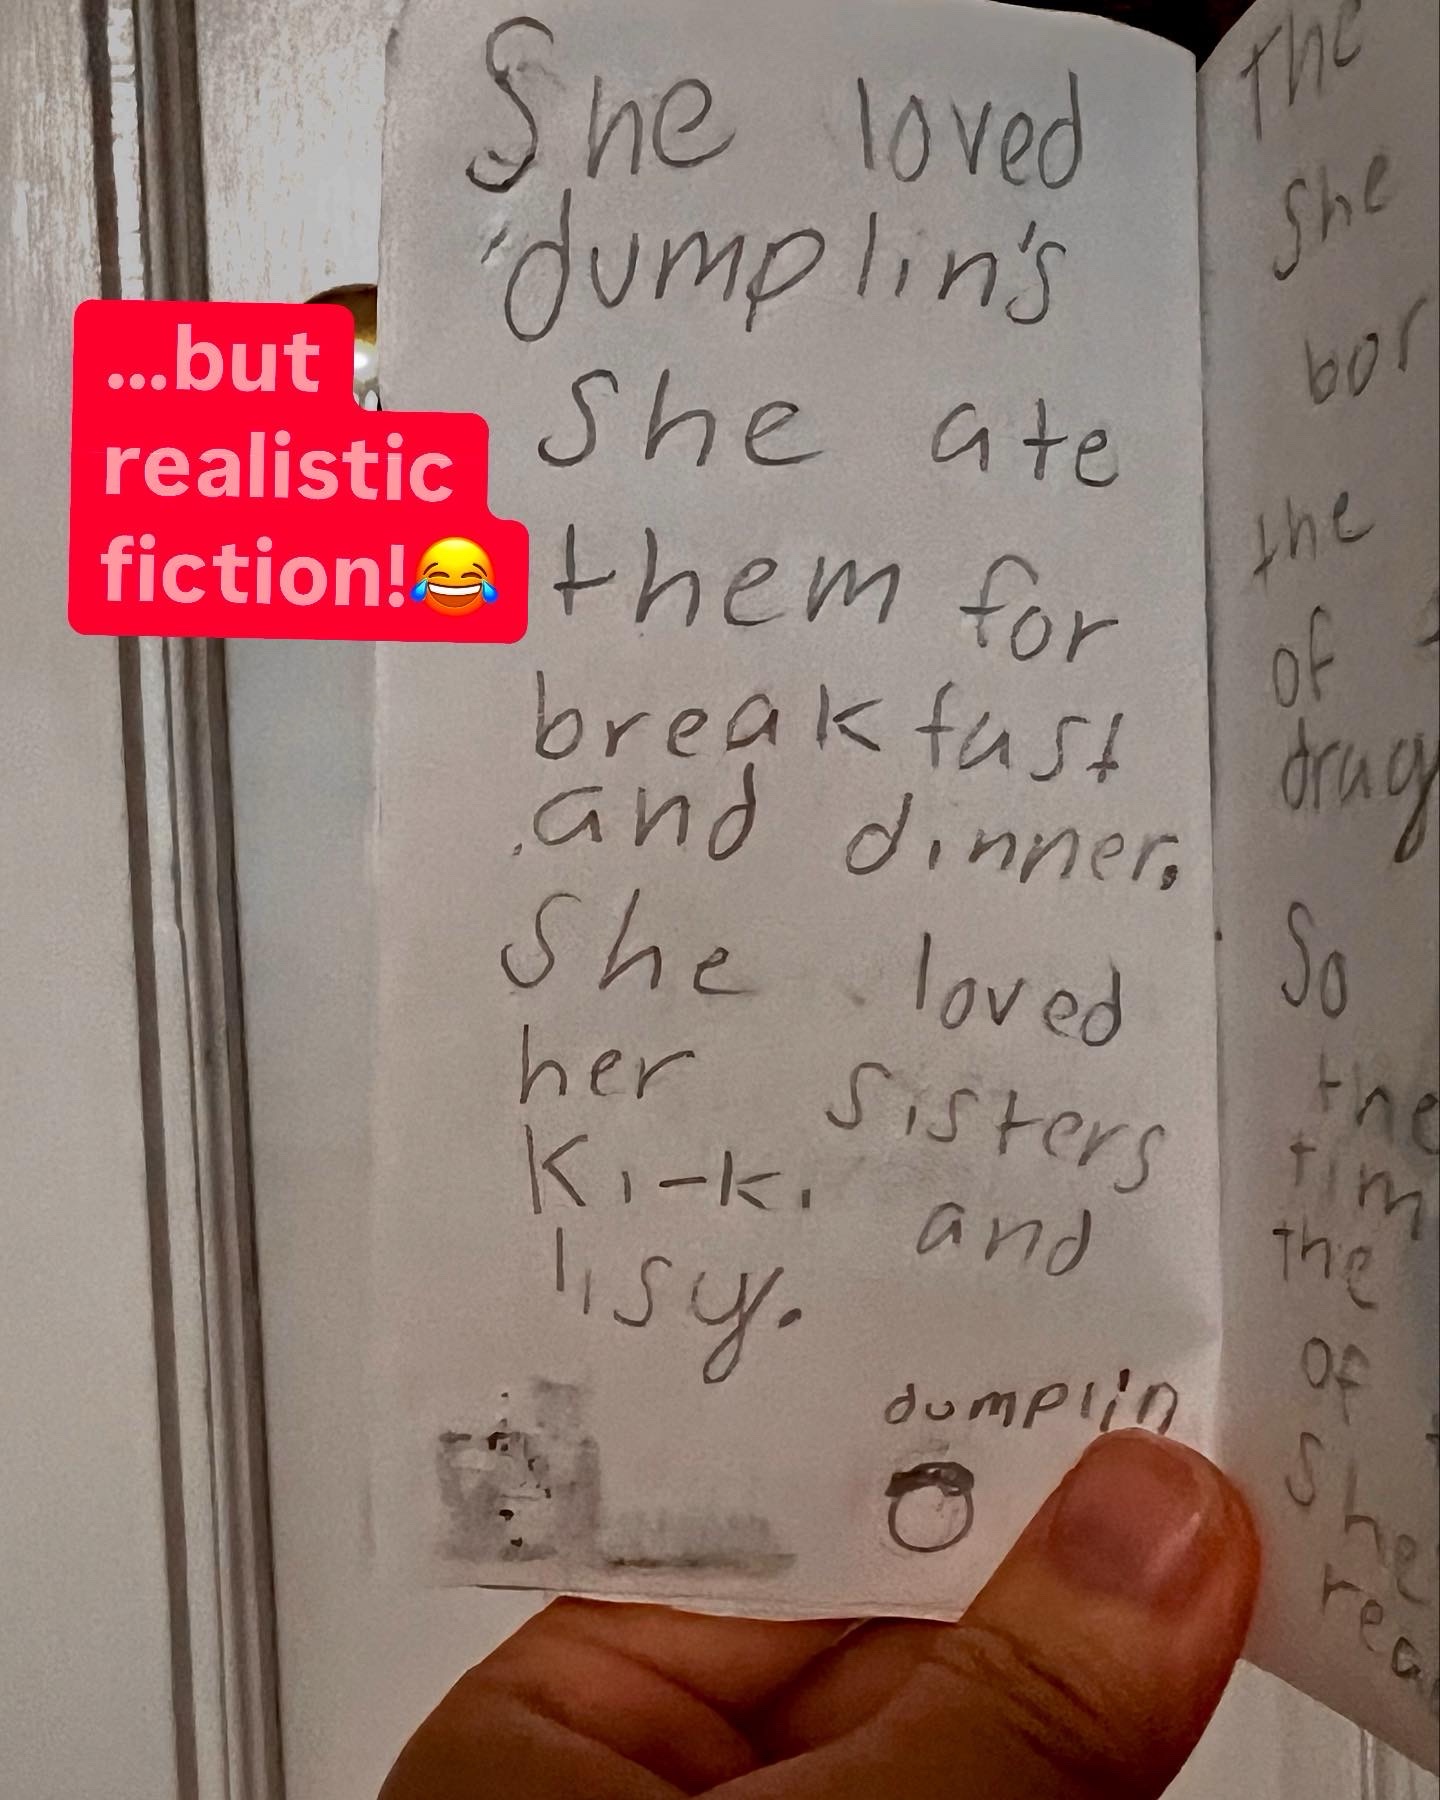 She loved
'dumplin's
She ate
them for
breakfast
and dinner.
She loved
her sisters
Ki-ki and
lisy.
dumplin
...but
realistic
fiction!😂
The
she
the
of
So
the
of
She